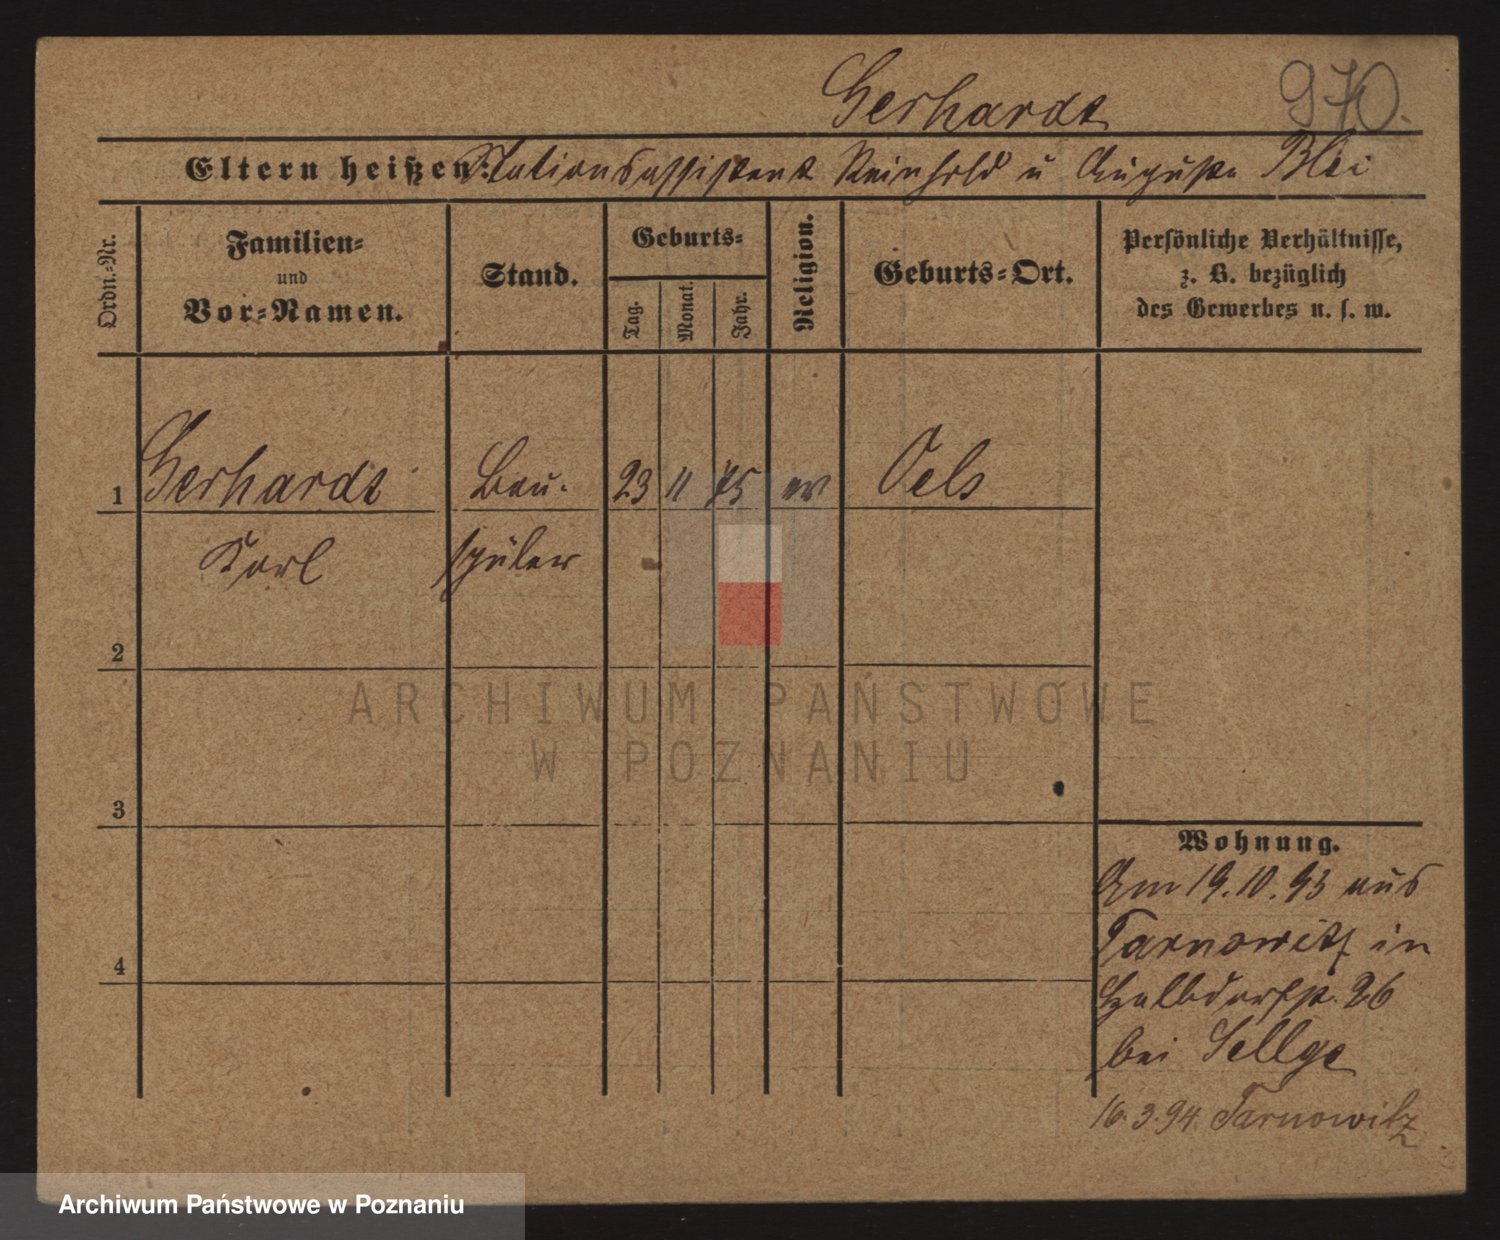 Gerhardt
970.
Eltern heißen: Stationsassistent Reinhold u Auguste Blei
Ordn.-Nr.
Familien-
und
Vor-Namen.
Stand.
Geburts-
Tag.
Monat.
Jahr.
Religion.
Geburts-Ort.
Persönliche Verhältnisse,
z. B. bezüglich
des Gewerbes u. s. w.
1 Gerhardt Bau- 23 11 75 ev Oels
Karl schüler
2
3
4
Wohnung.
Am 19.10.93 aus
Tarnowitz in
Halbdorfstr. 26
bei Sellge
16.3.94. Tarnowitz
ARCHIWUM PAŃSTWOWE
W POZNANIU
Archiwum Państwowe w Poznaniu